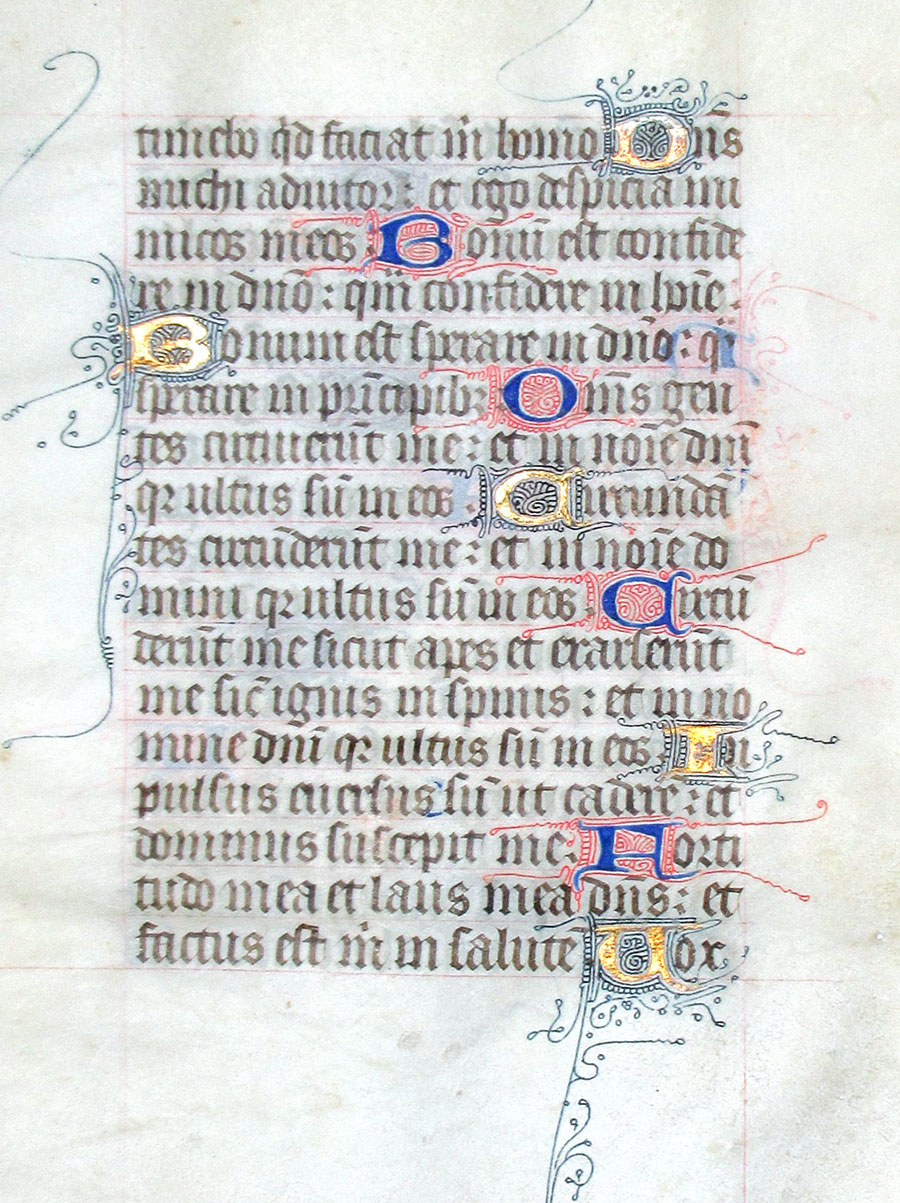 timebo q̄d faciat m̄ homo Dn̄s
michi adiutor: et ego despiciā ini
micos meos Bonū est confide
re in dn̄o: qm̄ confidere in hoīe:
Bonum est sperare in dn̄o: q̄
sperare in prīcipibꝫ Om̄s gen
tes circuierūt me: et in noīe dn̄i
qꝛ ultus sū in eos: Circundā
tes circūderūt me: et in noīe do
mini qꝛ ultus sū in eos Circū
derūt me sicut apes et exarserūt
me sic̄ ignis in spinis: et in no
mine dn̄i qꝛ ultus sū in eos In
pulsus euersus sū ut caderē: et
dominus suscepit me: Forti
tudo mea et laus mea dn̄s: et
factus est m̄ in salutē Vox